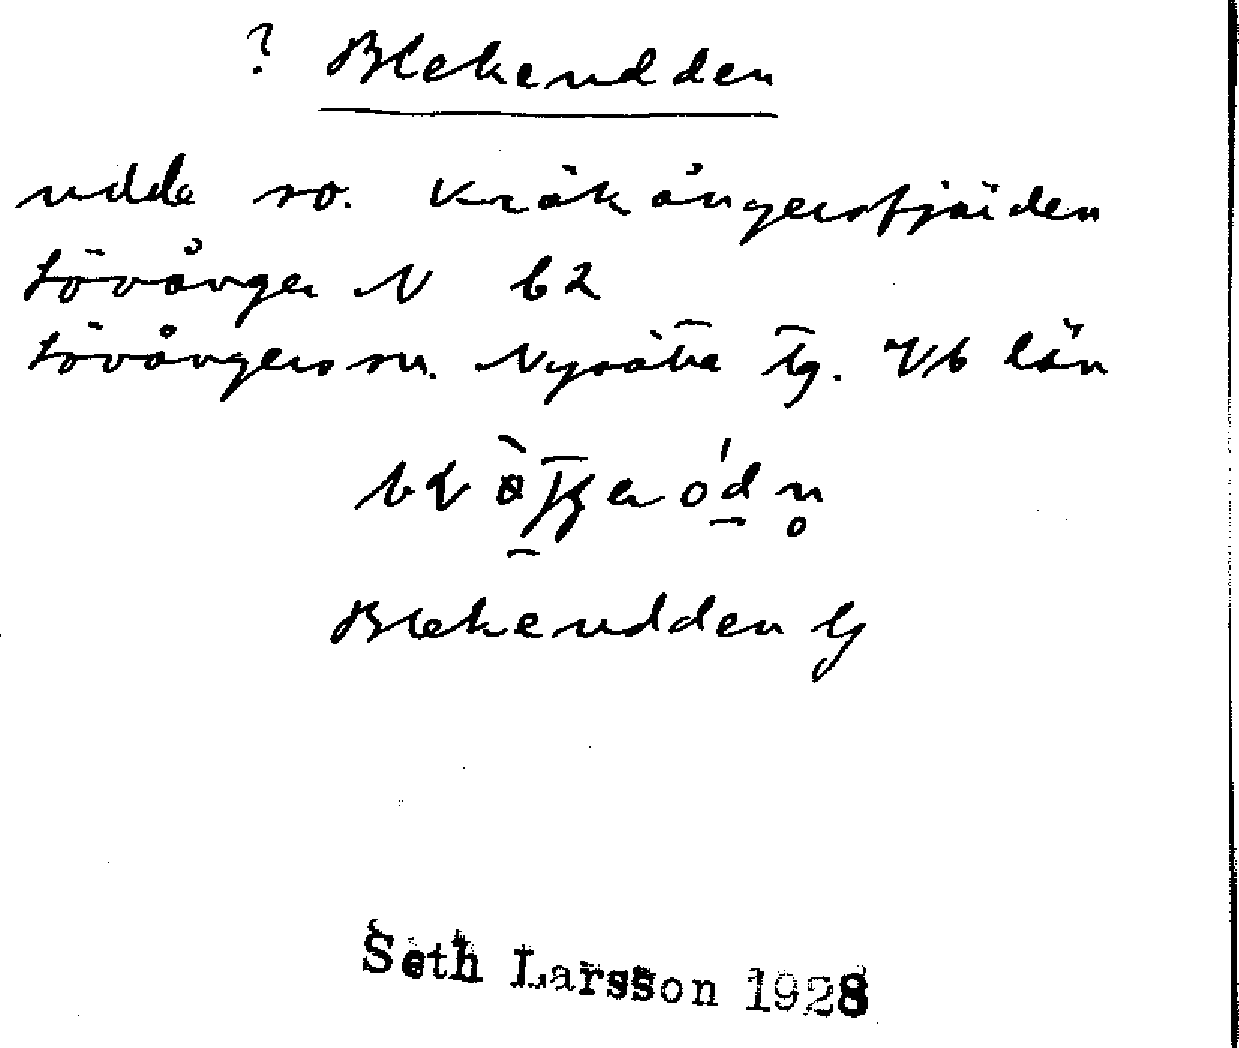 ? Blekeudden
udde so. Kräkångersfjärden
Lövånger N b2
Lövångers sn. Nysätra tg. Vb län
Blekeudden G
Seth Larsson 1928